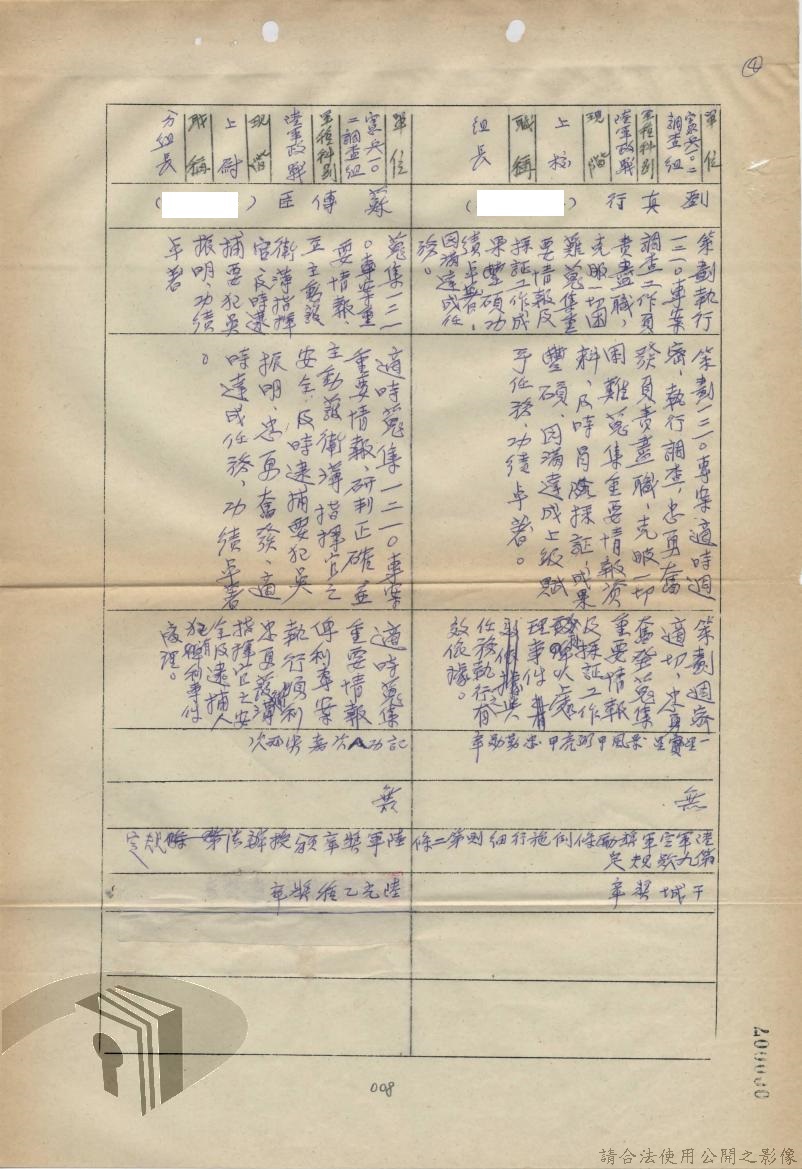 ④
單位
憲兵二〇二調查組
軍種科別
陸軍政戰
現階
上校
職稱
組長
劉真行( )
策劃執行
一三一〇專案
調查工作負
責盡職,
克服一切困
難蒐集重
要情報及
採証工作成
果豐碩功
績卓著,
因滿達成任
務。
策劃一三一〇專案適時週
密,執行調查,忠勇奮
發負責盡職,克服一切
困難蒐集重要情報資
料,及時肖蒐採証,成果
豐碩,因滿達成上級賦
予任務,功績卓著。
策劃週密
適切,忠勇
奮發蒐集
重要情報
及採証工作
以處
理事件
任務執行有
效依據。
一星寶星景風甲弼亮甲忠勤勳章
無
陸軍空軍獎勵條例施行細則第二條
第九款規定
干城獎章
單位
憲兵二〇二調查組
軍種科別
陸軍政戰
現階
上尉
職稱
分組長
蘇傳臣( )
蒐集一三一
〇專案重
要情報,
並主動護
衛薄指揮
官及時逮
捕要犯吳
振明,功績
卓著
適時蒐集一三一〇專案
重要情報、研判正確並
主動護衛薄指揮官之
安全,及時逮捕要犯吳
振明,忠勇奮發,適
時達成任務,功績卓著
。
適時蒐集
重要情報
俾利專案
執行順利
忠勇護衛薄
指揮官之安
全及逮捕人
犯有利事件
處理。
記功八次嘉獎廿次
無
陸軍獎章頒授辦法第 條規定
陸光乙種獎章
008
000007
請合法使用公開之影像